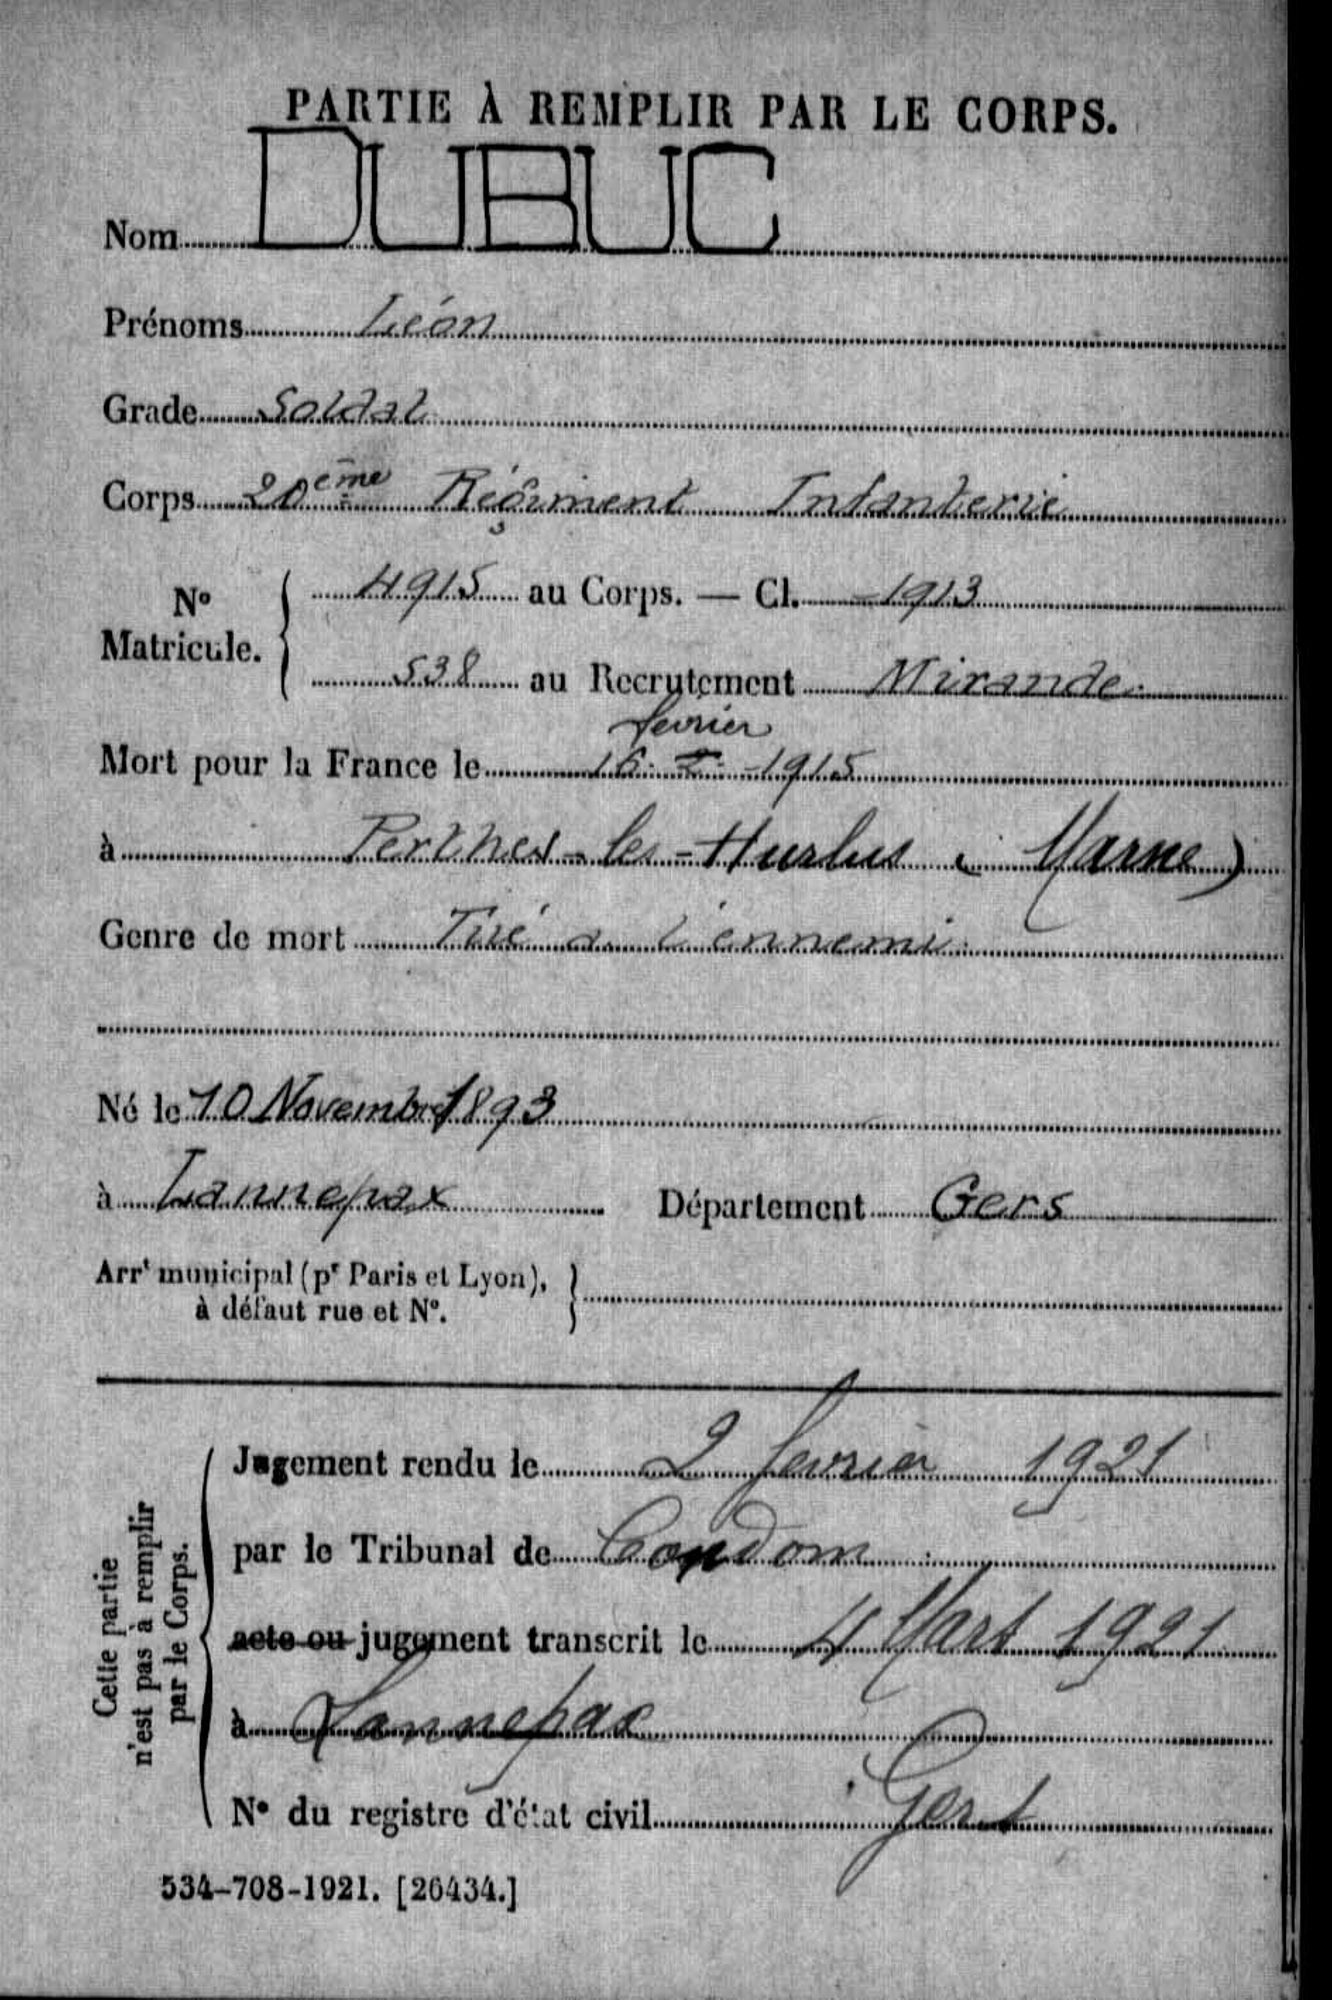 PARTIE À REMPLIR PAR LE CORPS.
Nom DUBUC
Prénoms Léon
Grade Soldat
Corps 20ème Régiment Infanterie
N° Matricule. 4915 au Corps. — Cl. 1913
538 au Recrutement Mirande
février
Mort pour la France le 16 - 2 - 1915
à Perthes-les-Hurlus (Marne)
Genre de mort Tué à l'ennemi
Né le 10 Novembre 1893
à Lannepax Département Gers
Arrt municipal (pr Paris et Lyon),
à défaut rue et N°.
Cette partie
n'est pas à remplir
par le Corps.
Jugement rendu le 2 fevrier 1921
par le Tribunal de Condom
acte ou jugement transcrit le 4 Mars 1921
à Lannepax
N° du registre d'état civil Gers
534-708-1921. [26434.]